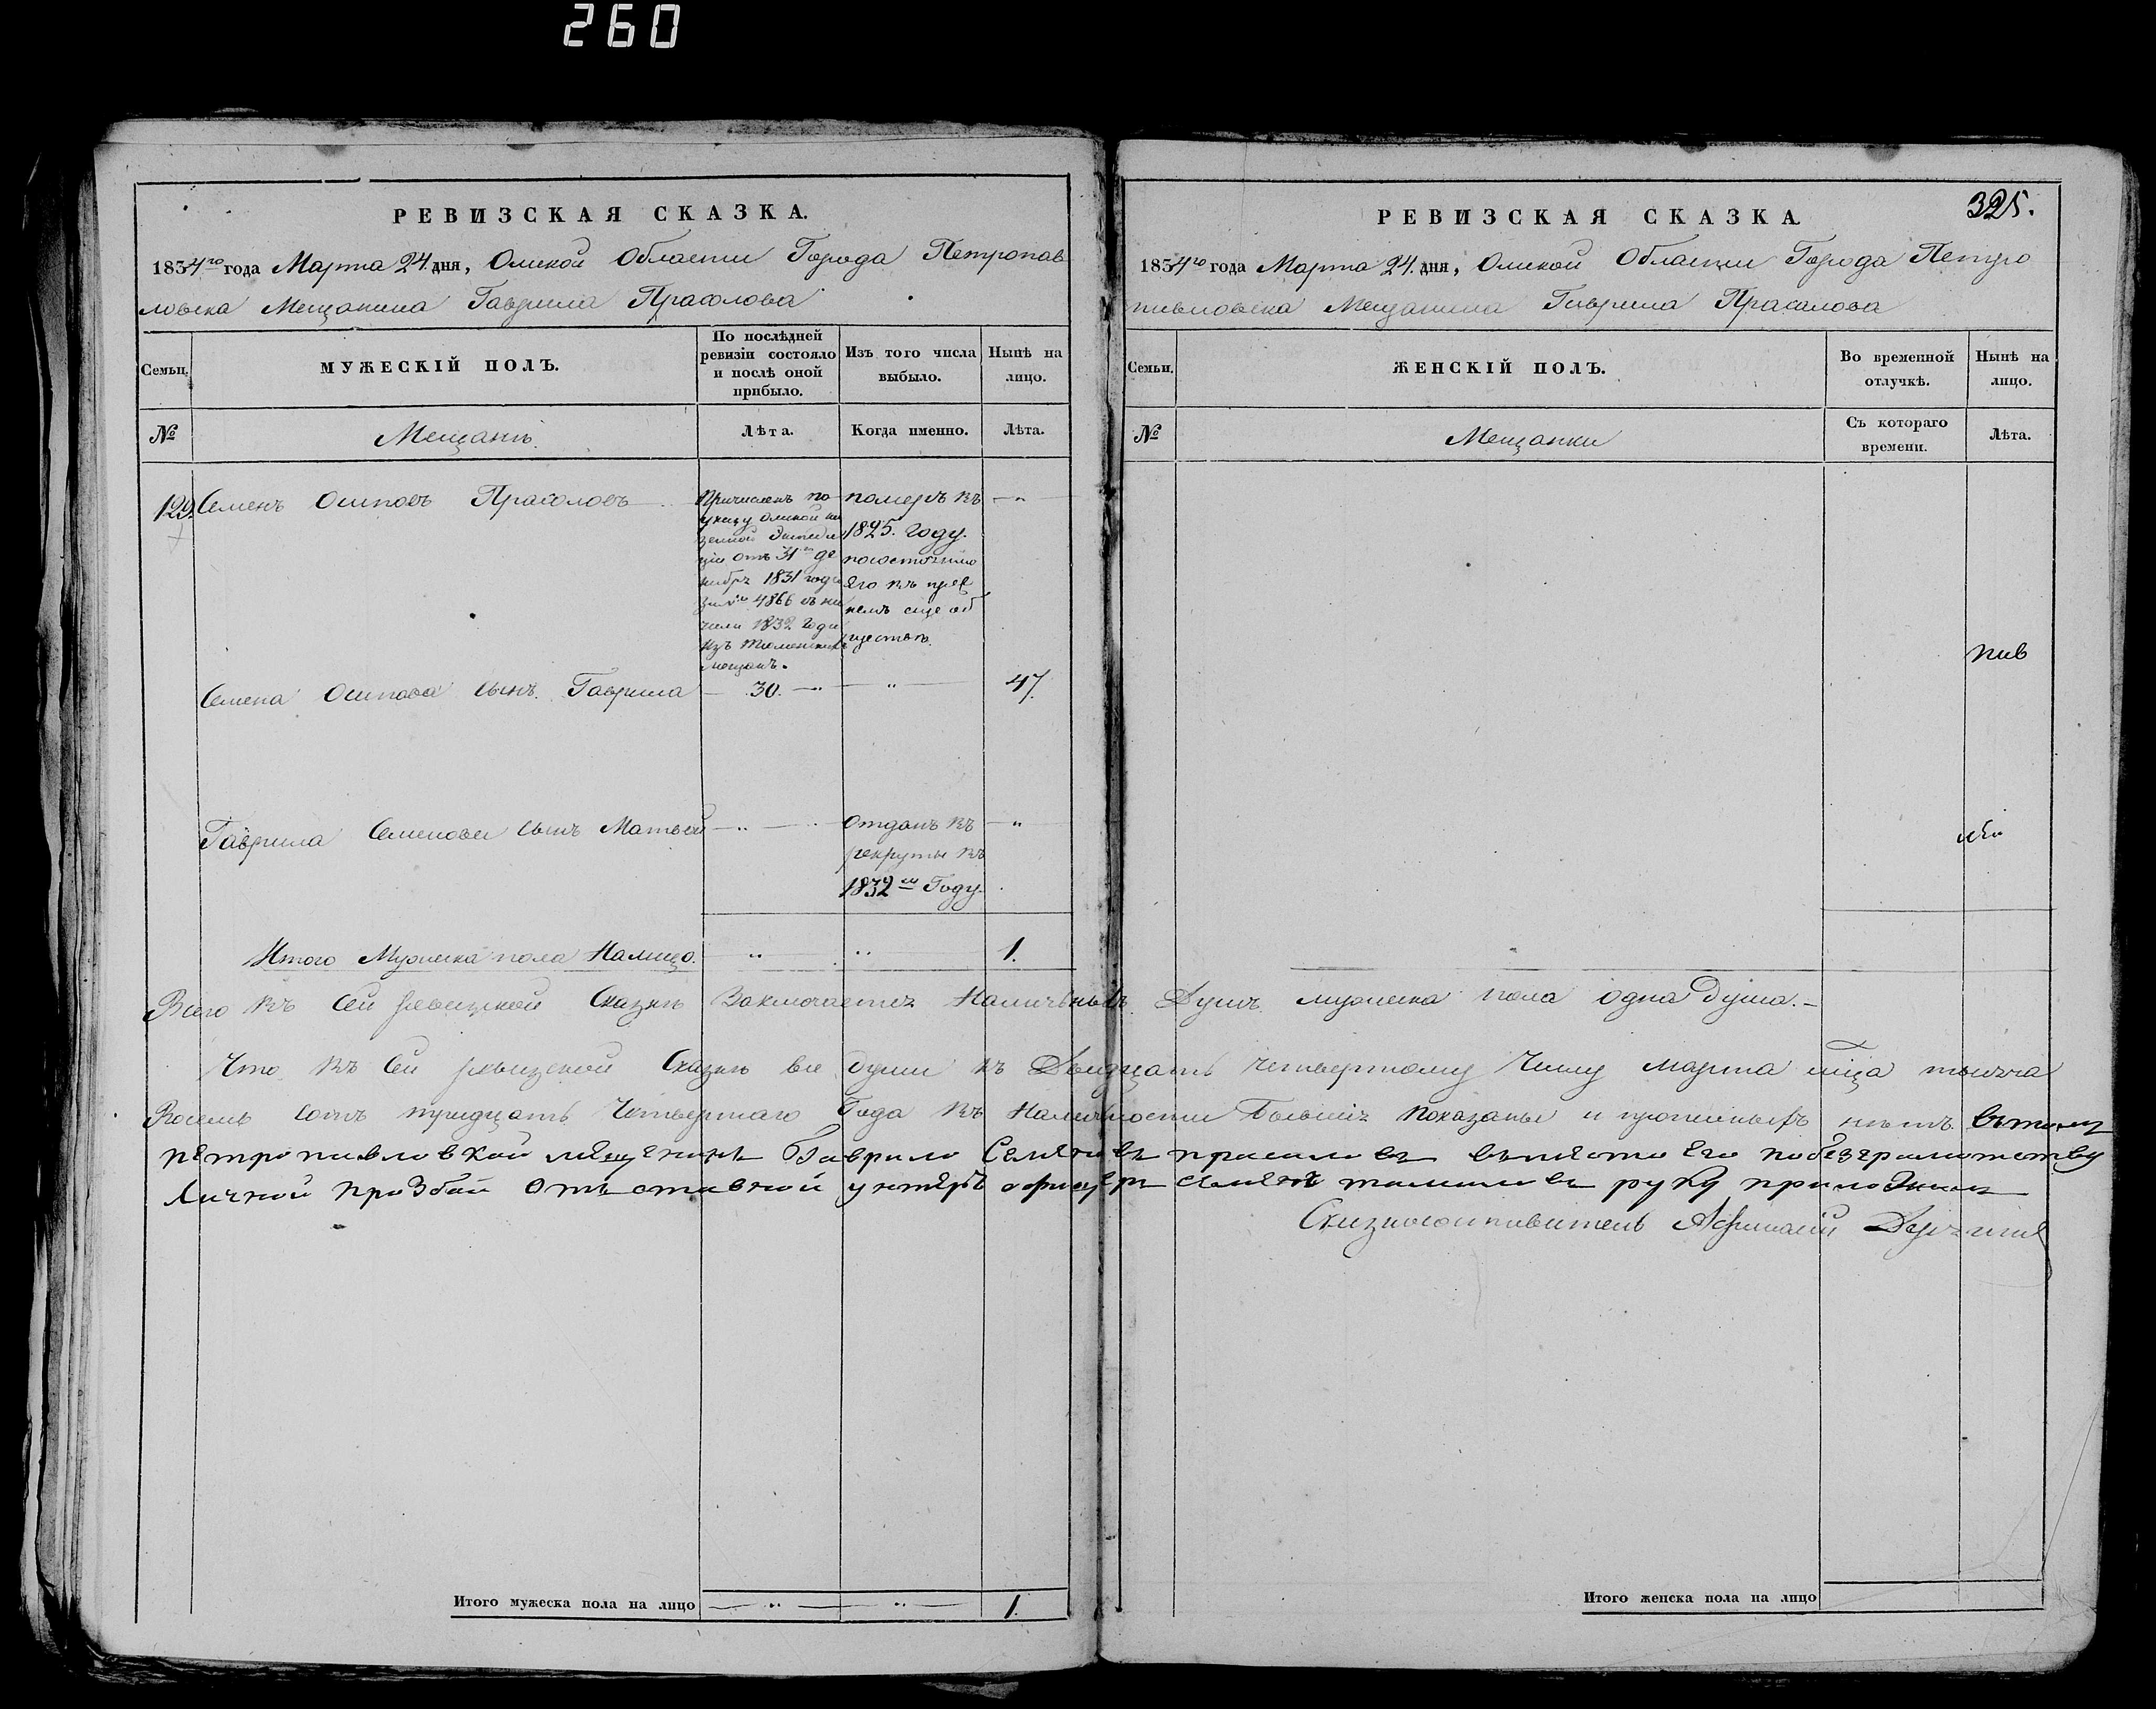 260
РЕВИЗСКАЯ СКАЗКА.
1834го года Марта 24. дня, Омской Области Города Петропав
ловска Мещанина Гаврила Прасолова
Семьи.
МУЖЕСКІЙ ПОЛЪ.
По послѣдней ревизіи состояло и послѣ оной прибыло.
Изъ того числа выбыло.
Нынѣ на лицо.
№
Мещанъ.
Лѣта.
Когда именно.
Лѣта.
129. Семенъ Осиповъ Прасоловъ
Причисленъ по
указу Омской ка
зенной Экспеди
ціи отъ 31го де
кабря 1831 года
за № 4866 съ на
чала 1832 года
изъ Тюменскихъ
мещанъ.
померъ въ
1825. году.
по состоянію
его въ преж
немъ еще об
ществѣ.
Семена Осипова сынъ Гаврила — 30. — 47.
Гаврила Семенова сынъ Матвей
отданъ въ
рекруты въ
1832м Году.
Итого Мужеска пола Налицо. 1.
Итого мужеска пола на лицо 1.
РЕВИЗСКАЯ СКАЗКА.
325.
1834го года Марта 24. дня, Омской Области Города Петро
павловска Мещанина Гаврила Прасолова
Семьи.
ЖЕНСКІЙ ПОЛЪ.
Во временной отлучкѣ.
Нынѣ на лицо.
№
Мещанки
Съ котораго времени.
Лѣта.
Всего въ Сей ревизской Сказкѣ Заключается Наличныхъ Душъ мужеска пола одна Душа.—
Что въ Сей ревизской Сказкѣ все души къ Двадцать четвертому Числу Марта мца тысяча
Восемь сотъ тридцать Четвертаго Года въ Наличности Бывшія показаны и прописныхъ нѣтъ
петропавловской мещенинъ Гаврило Семеновъ прасоловъ вместо Его побезграмотству
Личной прозбой отъставной унтеръ офицеръ Семенъ руку приложилъ
Сказкосоставитель Афанасій
Итого женска пола на лицо